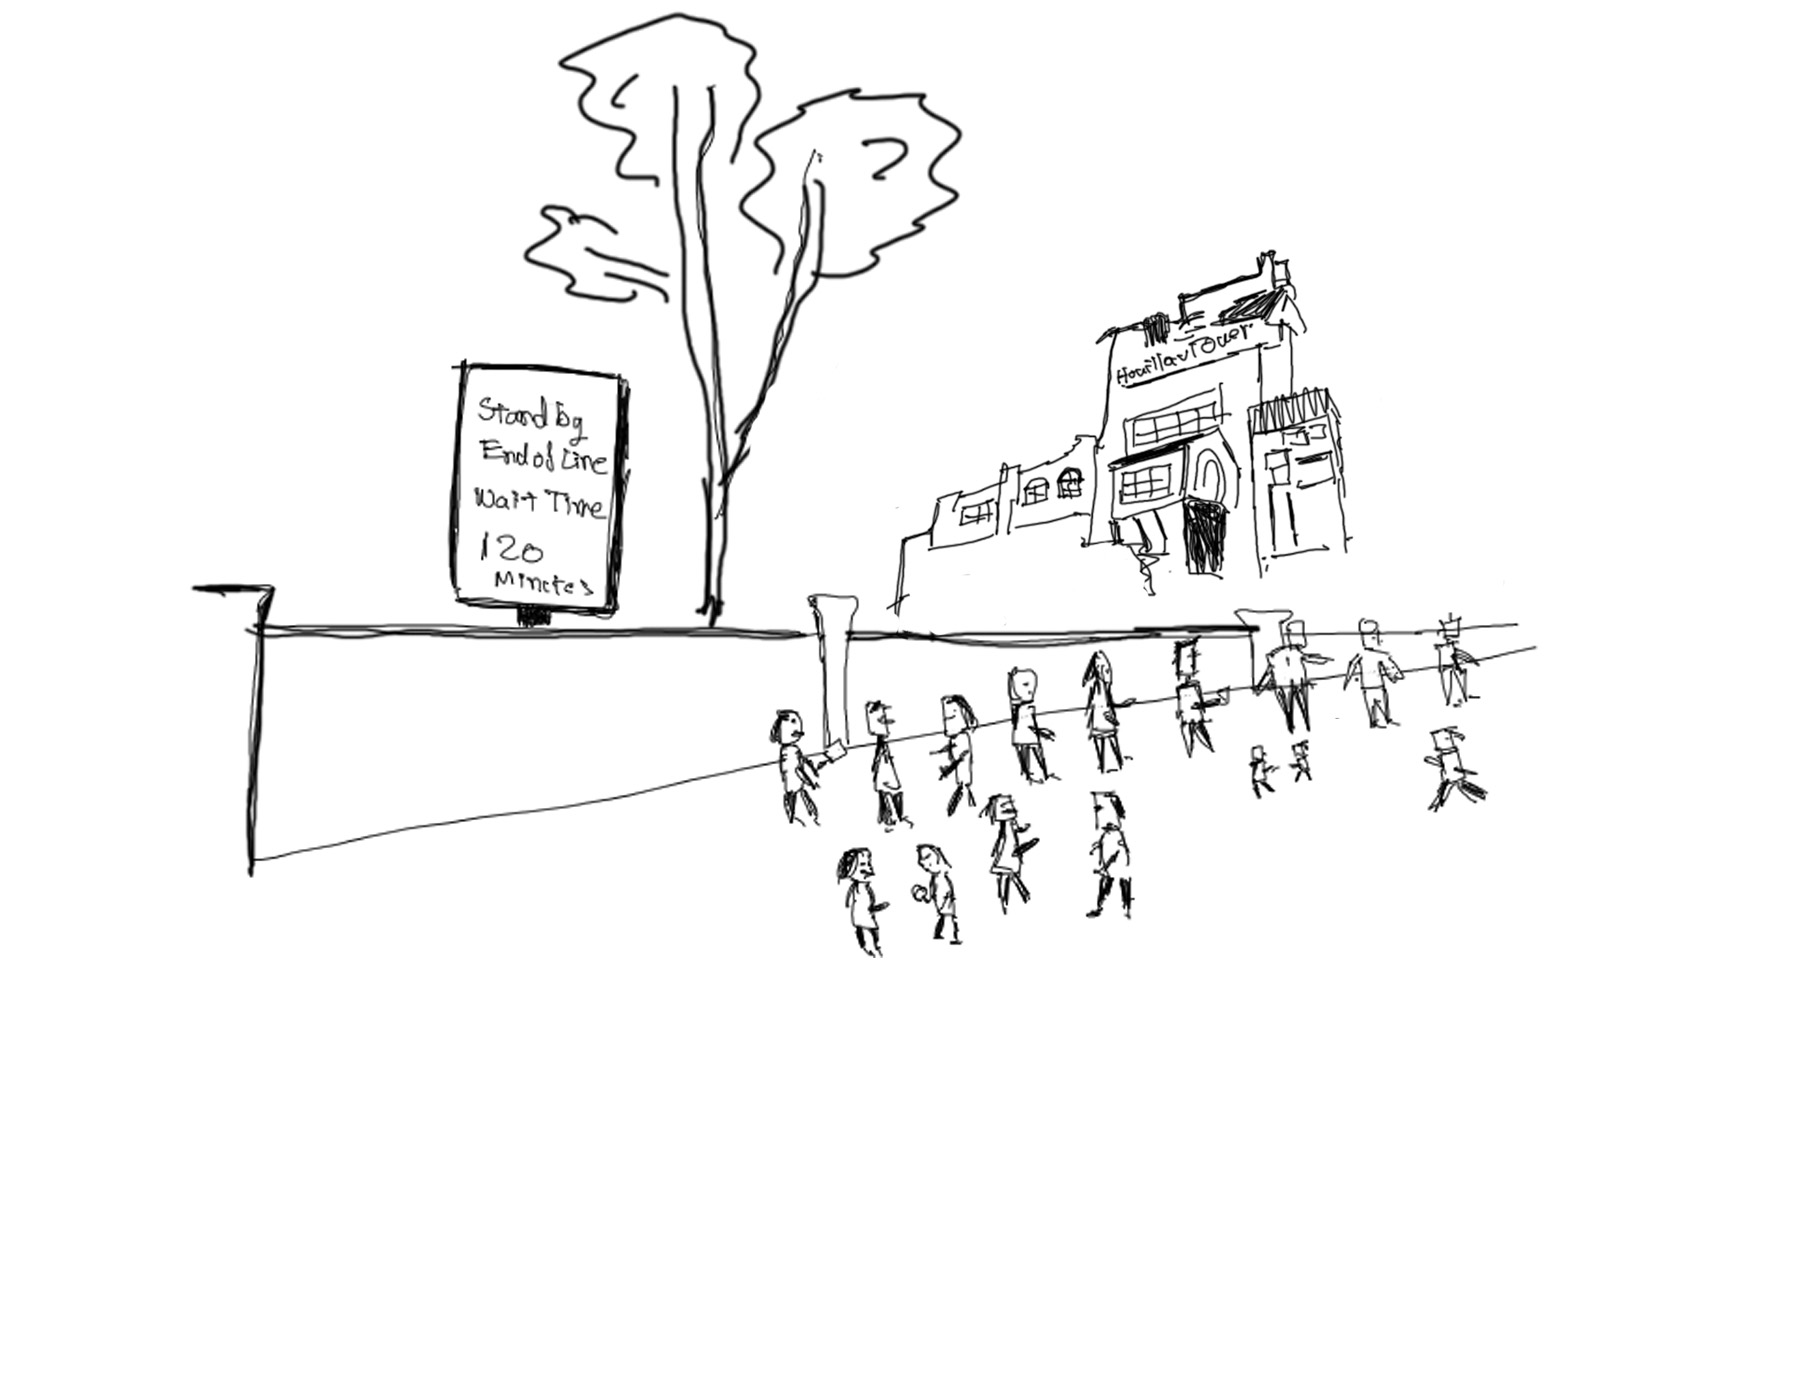 Stand by
End of Line
Wait Time
120
Minutes
Tower